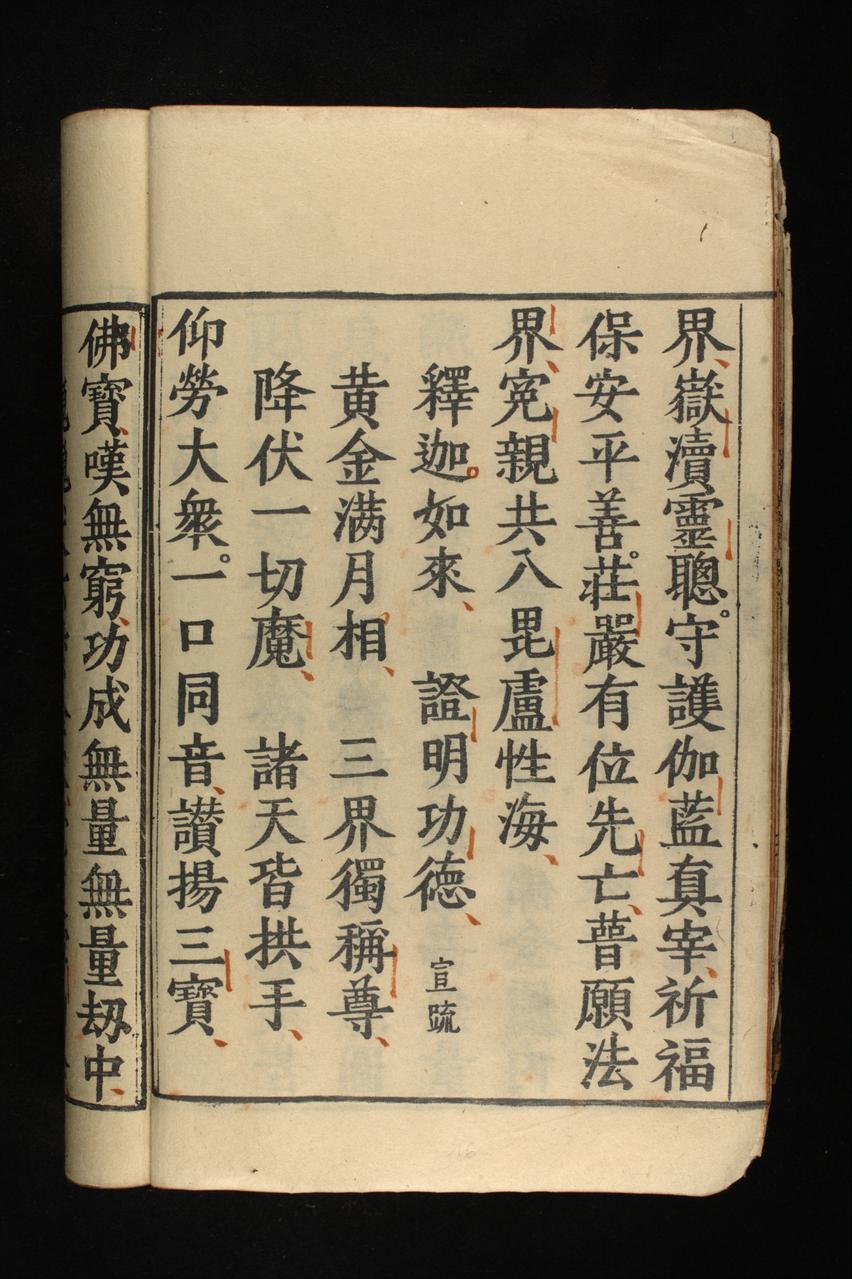 界嶽瀆靈聰。守護伽藍真宰祈福
保安平善。莊嚴有位先亡、普願法
界、寃親共入毘盧性海、
釋迦如來、 證明功德、 宣䟽
黄金満月相、 三界獨稱尊、
降伏一切魔、 諸天皆拱手、
仰勞大衆。一口同音、讃揚三寶、
佛寶、嘆無窮、功成無量無量劫中、